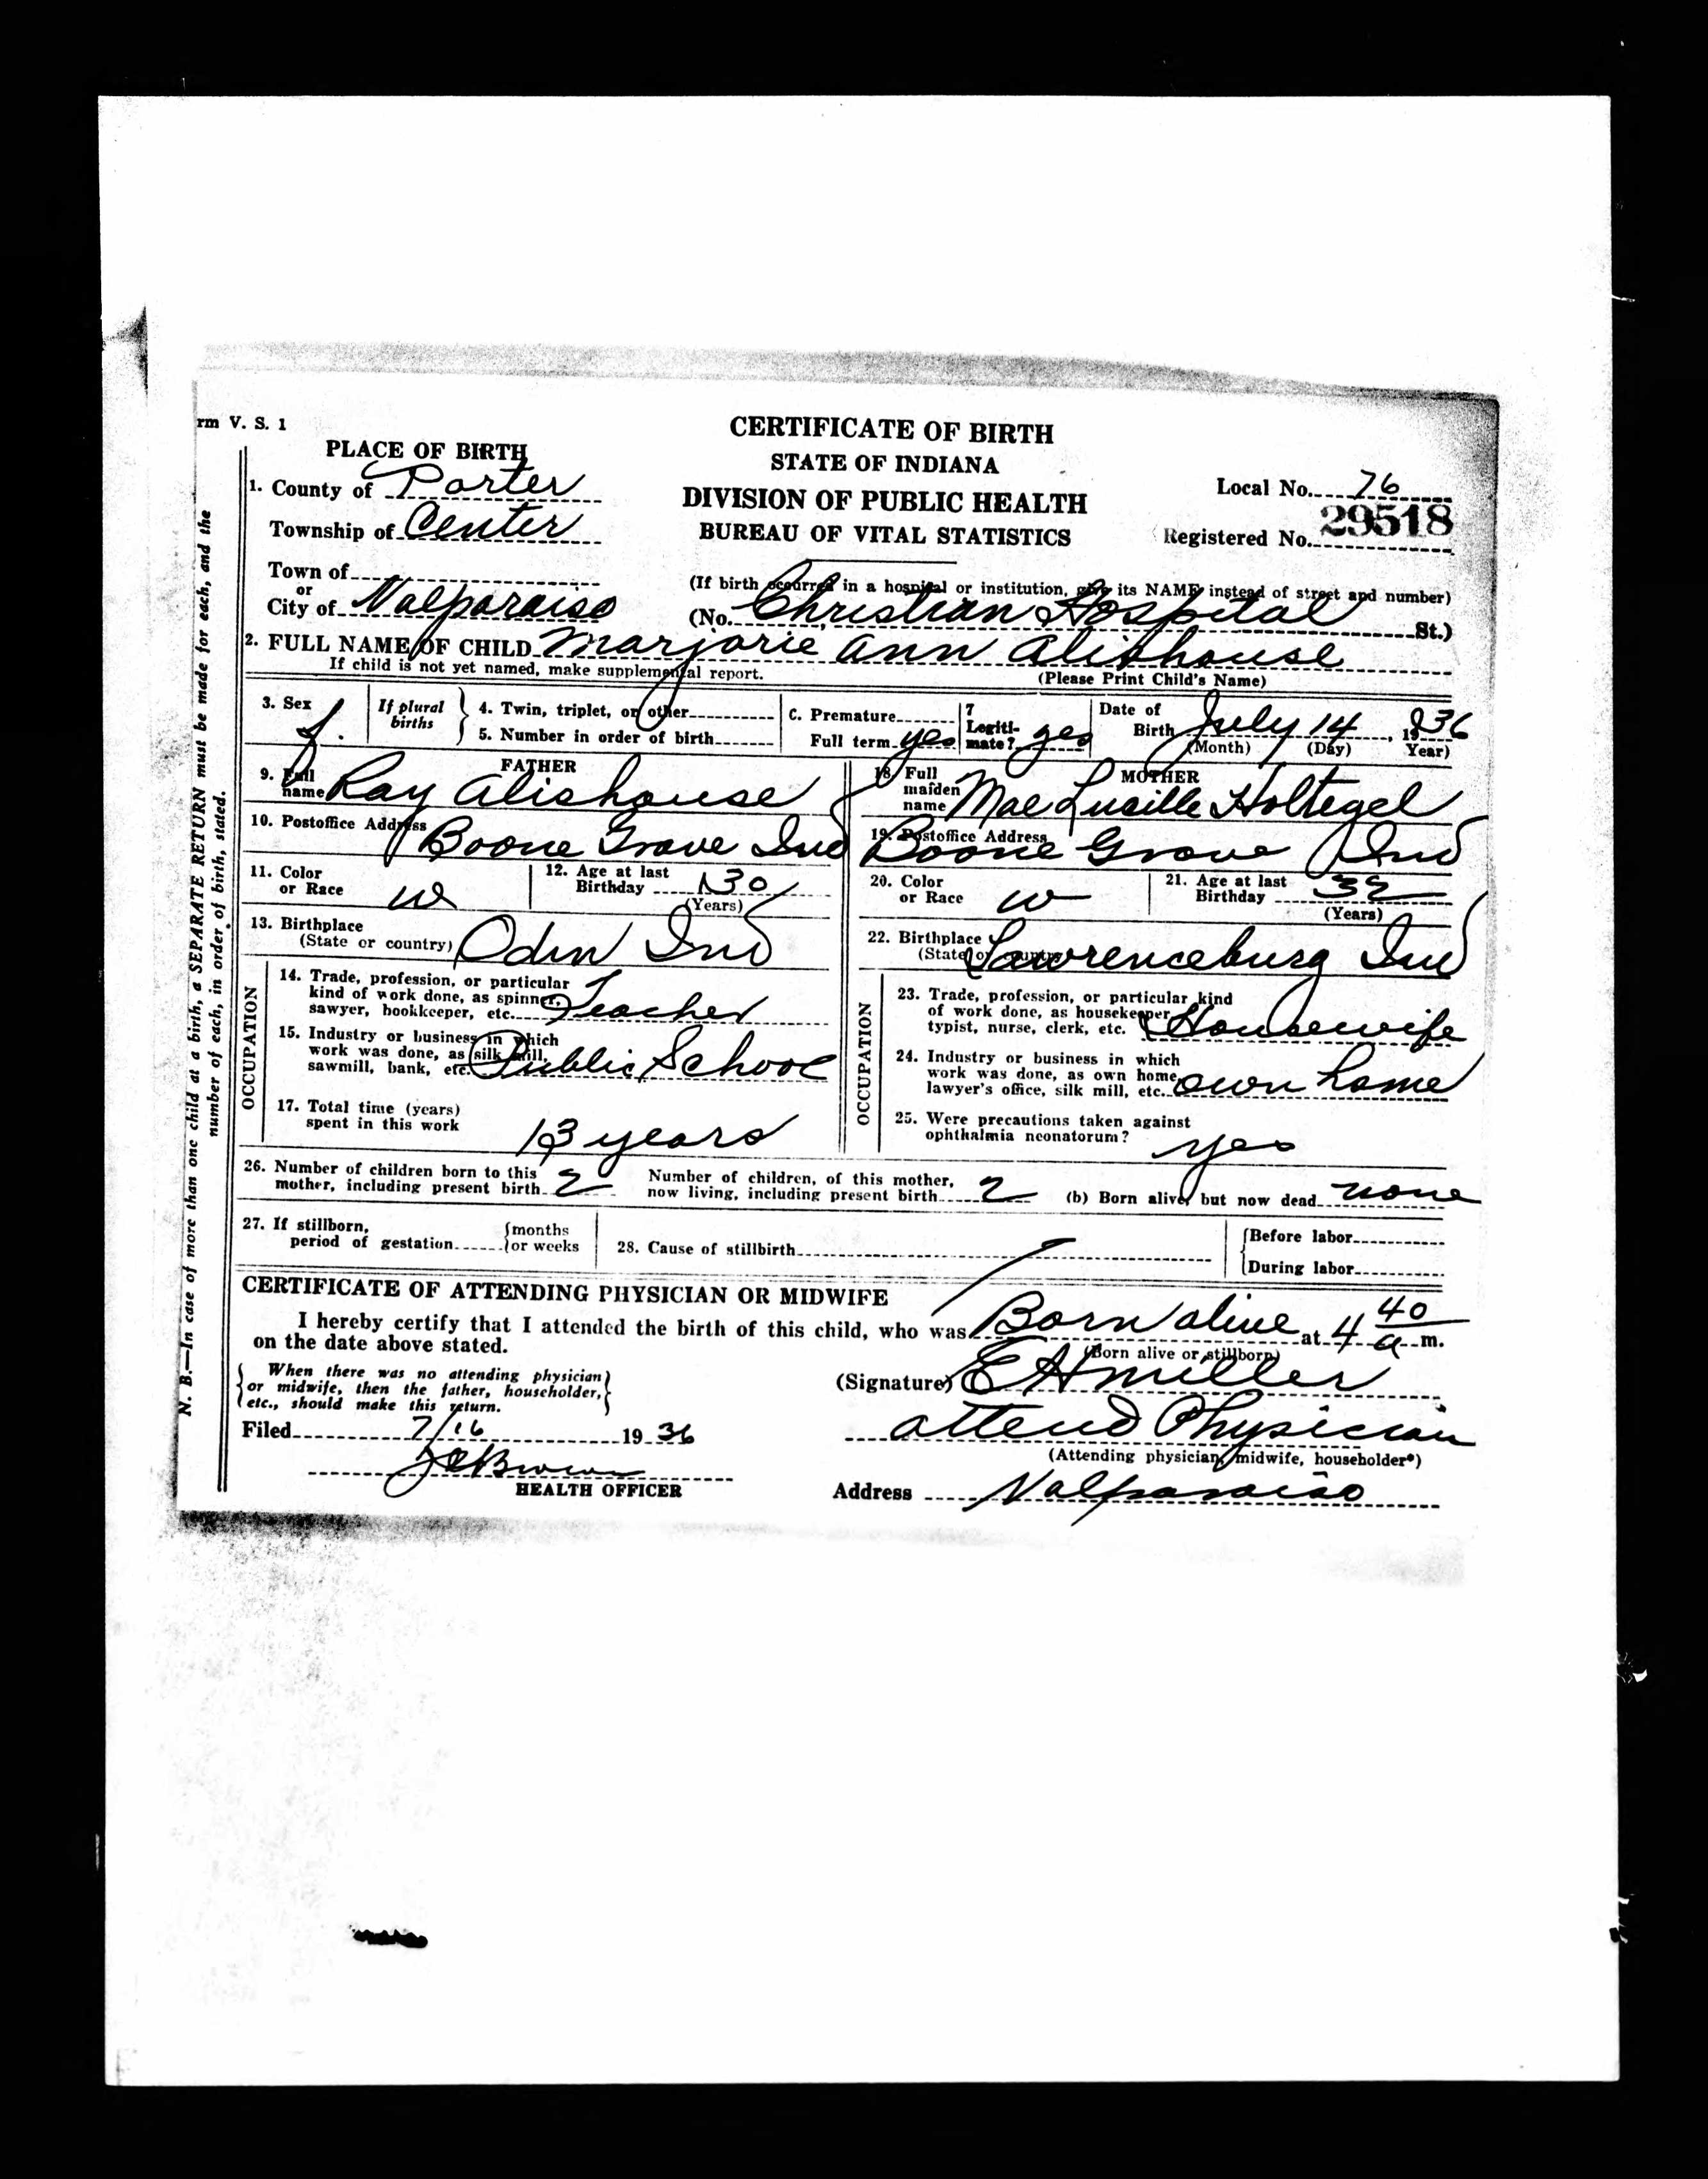 rm V. S. 1
CERTIFICATE OF BIRTH
STATE OF INDIANA
DIVISION OF PUBLIC HEALTH
BUREAU OF VITAL STATISTICS
Local No. 76
Registered No. 29518
PLACE OF BIRTH
1. County of Porter
Township of Center
Town of
or
City of Valparaiso
(If birth occurred in a hospital or institution, give its NAME instead of street and number)
(No. Christian Hospital St.)
2. FULL NAME OF CHILD Marjorie Ann Alishouse
If child is not yet named, make supplemental report. (Please Print Child's Name)
3. Sex f.
If plural births
4. Twin, triplet, or other
5. Number in order of birth
C. Premature
Full term yes
7 Legiti-
mate? yes
Date of
Birth July 14, 1936
(Month) (Day) Year)
FATHER
9. Full
name Ray Alishouse
10. Postoffice Address Boone Grove Ind
11. Color
or Race W
12. Age at last
Birthday 30
(Years)
13. Birthplace
(State or country) Odin Ind
OCCUPATION
14. Trade, profession, or particular
kind of work done, as spinner,
sawyer, bookkeeper, etc. Teacher
15. Industry or business in which
work was done, as silk mill,
sawmill, bank, etc. Public School
17. Total time (years)
spent in this work 13 years
MOTHER
18. Full
maiden
name Mae Lucille Holtegel
19. Postoffice Address Boone Grove Ind
20. Color
or Race W
21. Age at last
Birthday 32
(Years)
22. Birthplace
(State or country) Lawrenceburg Ind
OCCUPATION
23. Trade, profession, or particular kind
of work done, as housekeeper,
typist, nurse, clerk, etc. Housewife
24. Industry or business in which
work was done, as own home,
lawyer's office, silk mill, etc. own home
25. Were precautions taken against
ophthalmia neonatorum? yes
26. Number of children born to this
mother, including present birth 2
Number of children, of this mother,
now living, including present birth 2
(b) Born alive, but now dead none
27. If stillborn,
period of gestation
months
or weeks
28. Cause of stillbirth
Before labor
During labor
CERTIFICATE OF ATTENDING PHYSICIAN OR MIDWIFE
I hereby certify that I attended the birth of this child, who was Born alive at 4 40 a m.
on the date above stated.
(Born alive or stillborn)
When there was no attending physician
or midwife, then the father, householder,
etc., should make this return.
(Signature) E H Miller
attend Physician
(Attending physician, midwife, householder*)
Filed 7/16 1936
HEALTH OFFICER
Address Valparaiso
N. B.—In case of more than one child at a birth, a SEPARATE RETURN must be made for each, and the
number of each, in order of birth, stated.